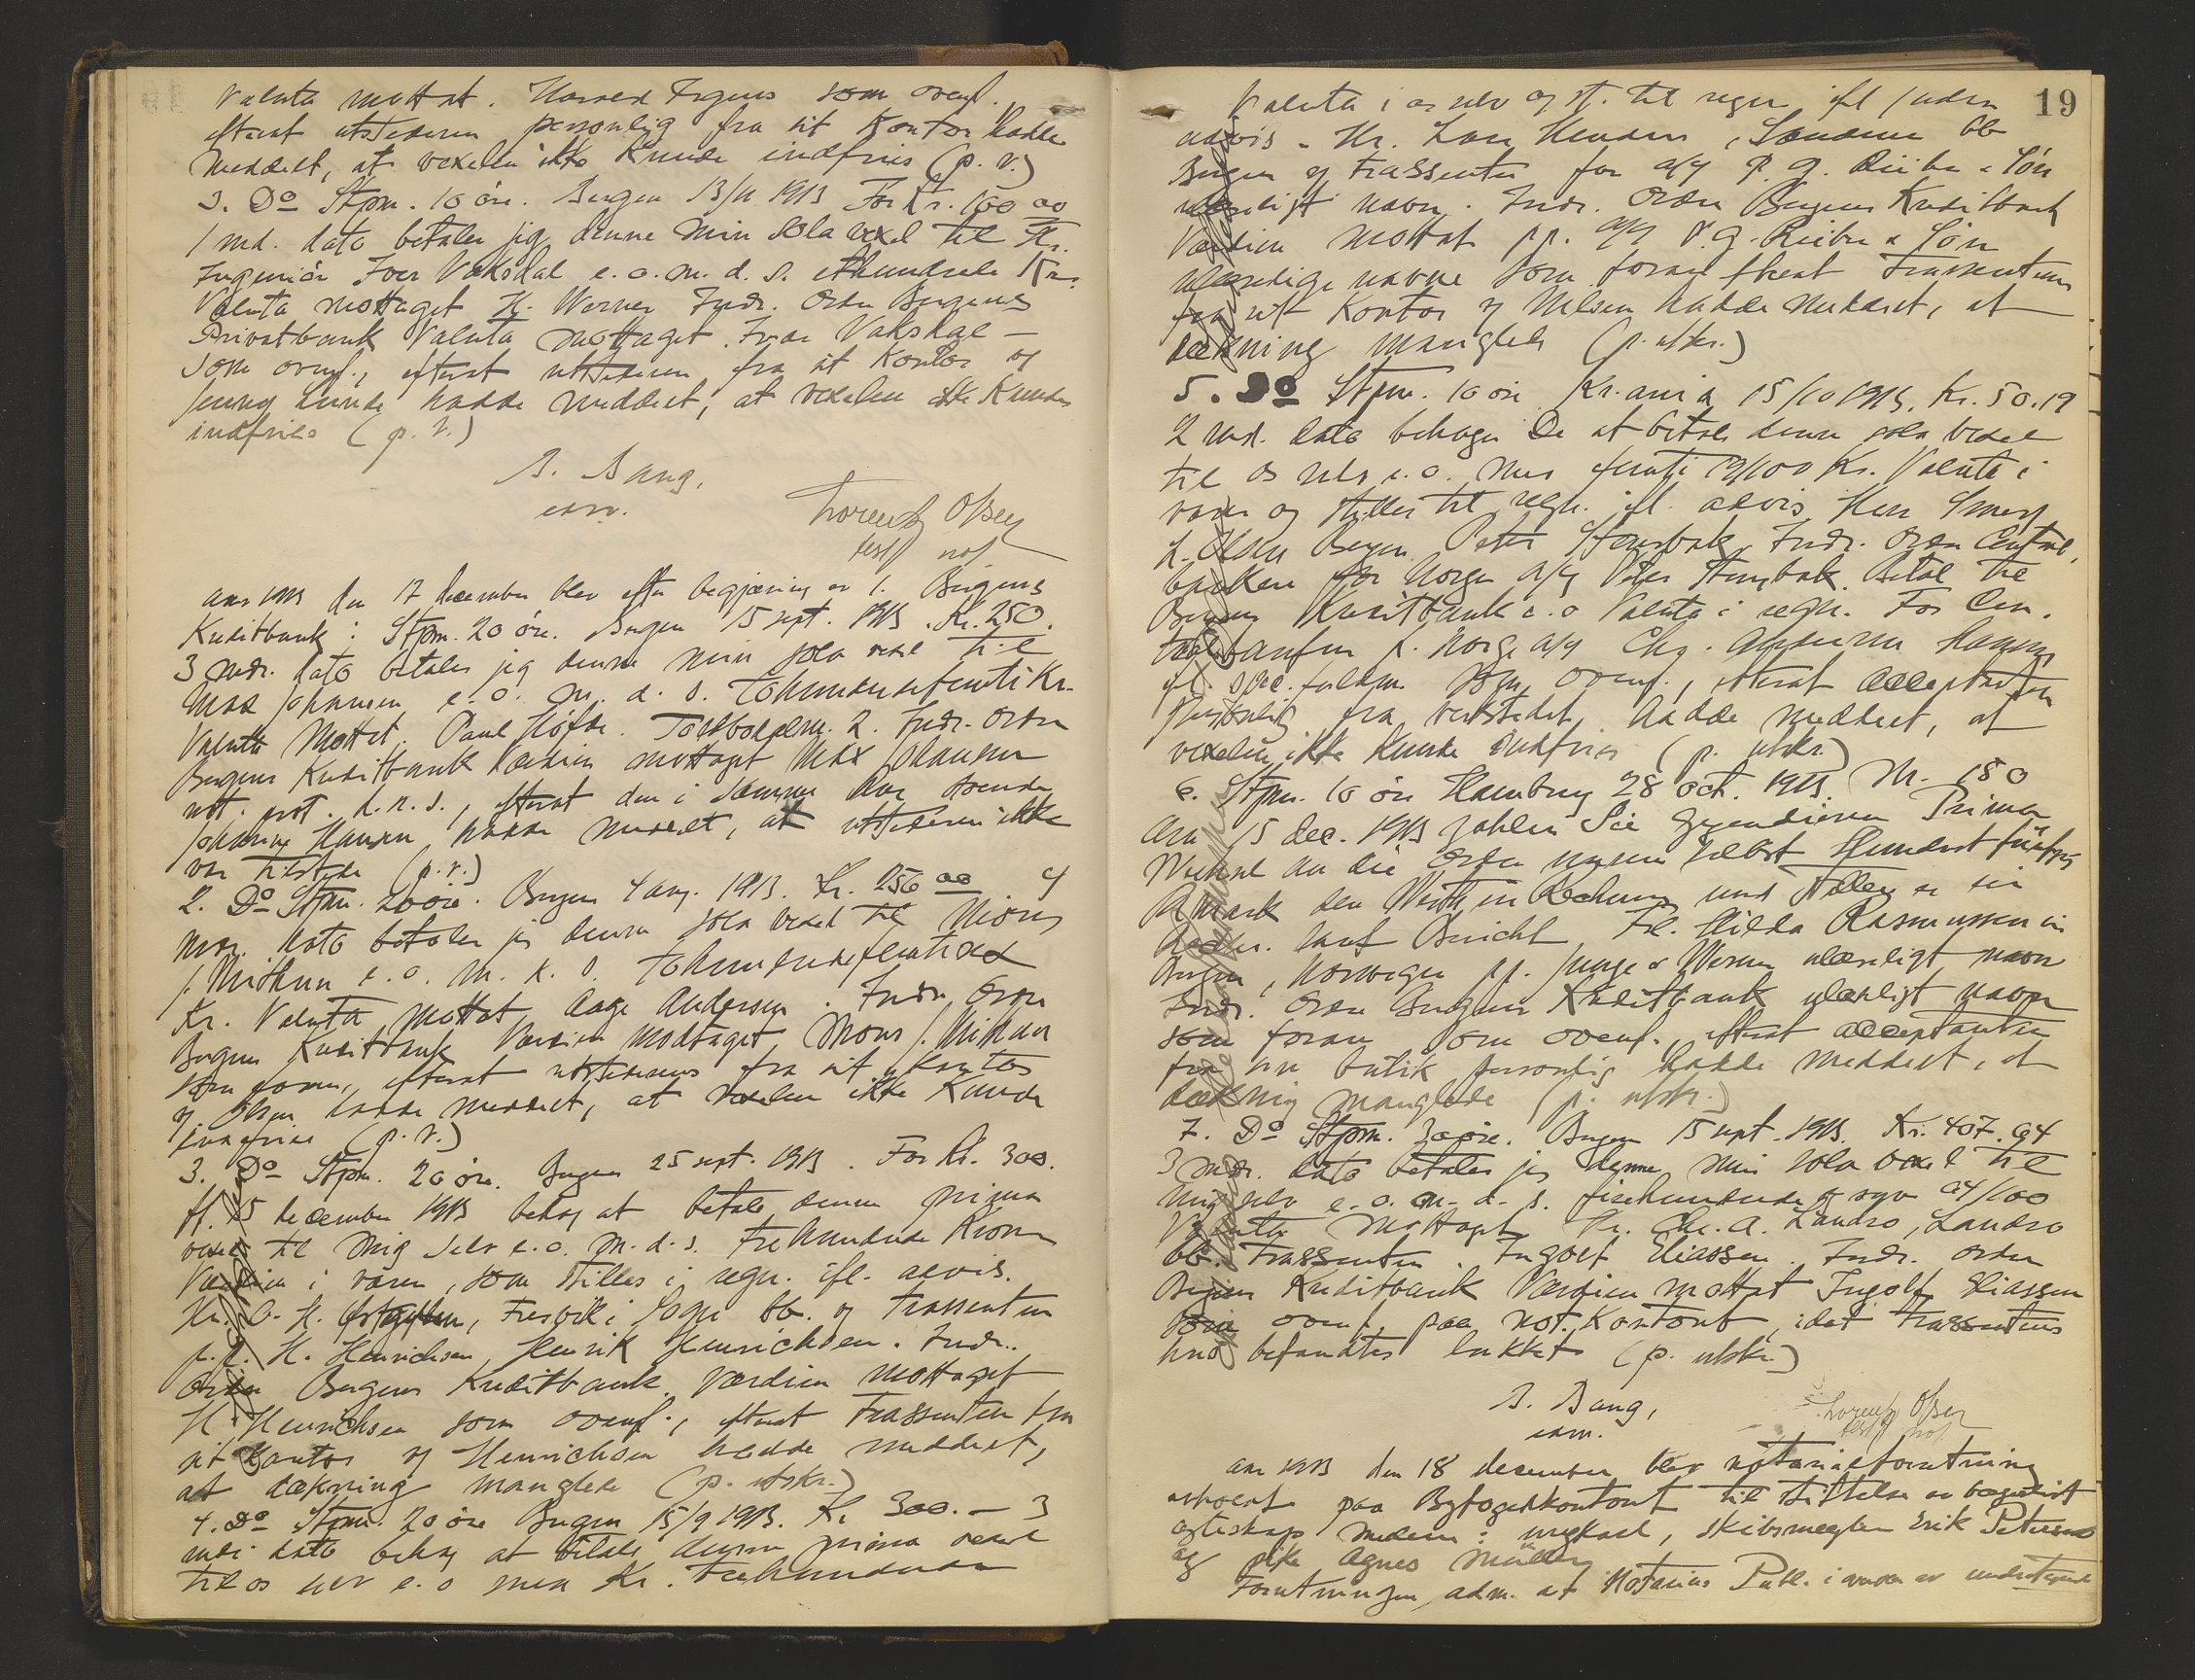 Valuta mottat. Harald Irgens som ovenf.
efterat utstederen personlig fra sit Kontor hadde
meddelt, at vexelen ikke Kunde indfries (p. v.)
3. Do Stpm. 10 øre. Bergen 13/11 1913 For Kr. 100 00
1 md. dato betaler jeg denne min sola vexel til Hr.
Ingeniør Ivar Vaksdal e. o. m. d. s. ethundrede Kr.
Valuta mottaget H. Werner Indr. Ordre Bergens
Privatbank Valuta mottaget Ivar Vaksdal —
som ovenf., efterat utstederen fra sit Kontor og
hadde meddelt, at vexelen ikke Kundes
indfries (p. v.)
B. Bang,
csn.
Lorentz Olsen
test not
Aar 1913 den 17 december blev efter begjæring av 1. Bergens
Kreditbank: Stpm. 20 øre. Bergen 15 sept. 1913. Kr. 250.
3 mdr. dato betaler jeg denne min sola vexel til
Max Johansen e. o. m. d. s. Tohundredefemti Kr.
Valuta Mottat. Paul Høfde. Toldbodalm. 2. Indr. Ordre
Bergens Kreditbank Værdien mottaget Max Johansen
not. prot. d.n.s., efterat den i samme hus boende
Hansen hadde meddelt, at utstederen ikke
var tilstede (p. v.)
2. Do Stpm. 20 øre. Bergen 4 aug. 1913. Kr. 250 00 4
mdr. dato betaler jeg denne sola vexel til Mons
J. Mithun e. o. m. d. s. Tohundredefemti
Kr. Valuta mottat Aage Andersen. Indr. Ordre
Bergens Kreditbank Værdien modtaget Mons J. Mithun
som foran, efterat utstederens fra sit Kontor
og Olsen hadde meddelt, at vexelen ikke Kunde
indfries (p. v.)
3. Do Stpm. 20 øre. Bergen 25 sept. 1913. For Kr. 300.
Pr. 15 december 1913 behag at betale denne prima
vexel til mig selv e. o. m. d. s. Trehundrede Kroner
Værdien i varer, som stilles i regn. ifl. advis.
Hr. O. H. Fresvik i Sogn bb. og Trassenten
p. p. H. Henrichsen, Henrik Henrichsen. Indr.
Ordre Bergens Kreditbank. Værdien mottaget
H. Henrichsen som ovenf., efterat Trassenten fra
sit Kontor og Henrichsen hadde meddelt,
at dækning manglede (p. utskr.)
4. Do Stpm. 20 øre Bergen 15/9 1913. Kr. 300. — 3
mdr. dato behag at betale denne prima vexel
til os selv e. o med Kr. Trehundrede
19
Valuta i os selv og st. til regn. ifl. uden
advis. Hr. Lars Bb
Bergen og Trassenten for a/s P. G. Rieber & Søn
ulæseligt navn. Indr. Ordre Bergens Kreditbank
Værdien mottat pp. a/s P. G. Rieber & Søn
ulæselige navne som foran efterat Trassentens
fra sit Kontor og Nilsen hadde meddelt, at
dækning manglede (p. utskr.)
5. Do Stpm. 10 øre Kr.ania 15/10 1913. Kr. 50.19
2 md. dato behager De at betale denne sola vexel
til os selv e. o. med femti 19/100 Kr. Valuta i
varer og stilles til regn. ifl. advis Herr
L. Olsen Bergen. Peter Stensbak. Indr. Ordre Central-
banken for Norge a/s Peter Stensbak. Betal til
Bergens Kreditbank e. o Valuta i regn. For Cen-
tralbanken f. Norge a/s Chr. Andersen
ifl. spec. fuldm. som ovenf., efterat acceptanten
personlig fra verkstedet, hadde meddelt, at
vexelen ikke Kunde indfries (p. utskr.)
6. Stpm. 10 øre Hamburg 28 oct. 1913. M. 150
Am 15 dec. 1913 zahlen Sie gegen diesen Prima
Wechsel an die Ordre unserer selbst Hundertfünfzig
Mark den Werth in Rechnung und stellen es in
Rechn. laut Bericht Frl. Hilda Rasmussen in
Bergen, Norwegen pp. Junge & Werner ulæseligt navn
Indr. Ordre Bergens Kreditbank ulæseligt navn
som foran som ovenf., efterat acceptantin
fra sin butik personlig hadde meddelt, at
dækning manglede (p. utskr.)
7. Do Stpm. 30 øre. Bergen 15 sept. 1913. Kr. 407.94
3 mdr. dato betaler jeg denne min sola vexel til
mig selv e. o. m. d. s. firehundrede og syv 94/100
Valuta mottaget Hr. Chr. A. Landro, Landro
bb. Trassenten. Ingolf Eliassen. Indr. Ordre
Bergens Kreditbank Værdien mottat Ingolf Eliassen
som ovenf. paa Not. Kontoret, idet trassentens
hus befandtes lukket (p. utskr.)
B. Bang,
csn.
Lorentz Olsen
test not
Aar 1913 den 18 december blev notarialforretning
avholdt paa Byfogedkontoret til stiftelse av borgerligt
egteskap mellem: ungkarl, skibsmægler Erik Petersen
og pike Agnes Müller
Forretningen adm. af Notarius Publ. i nærvær av undertegnede